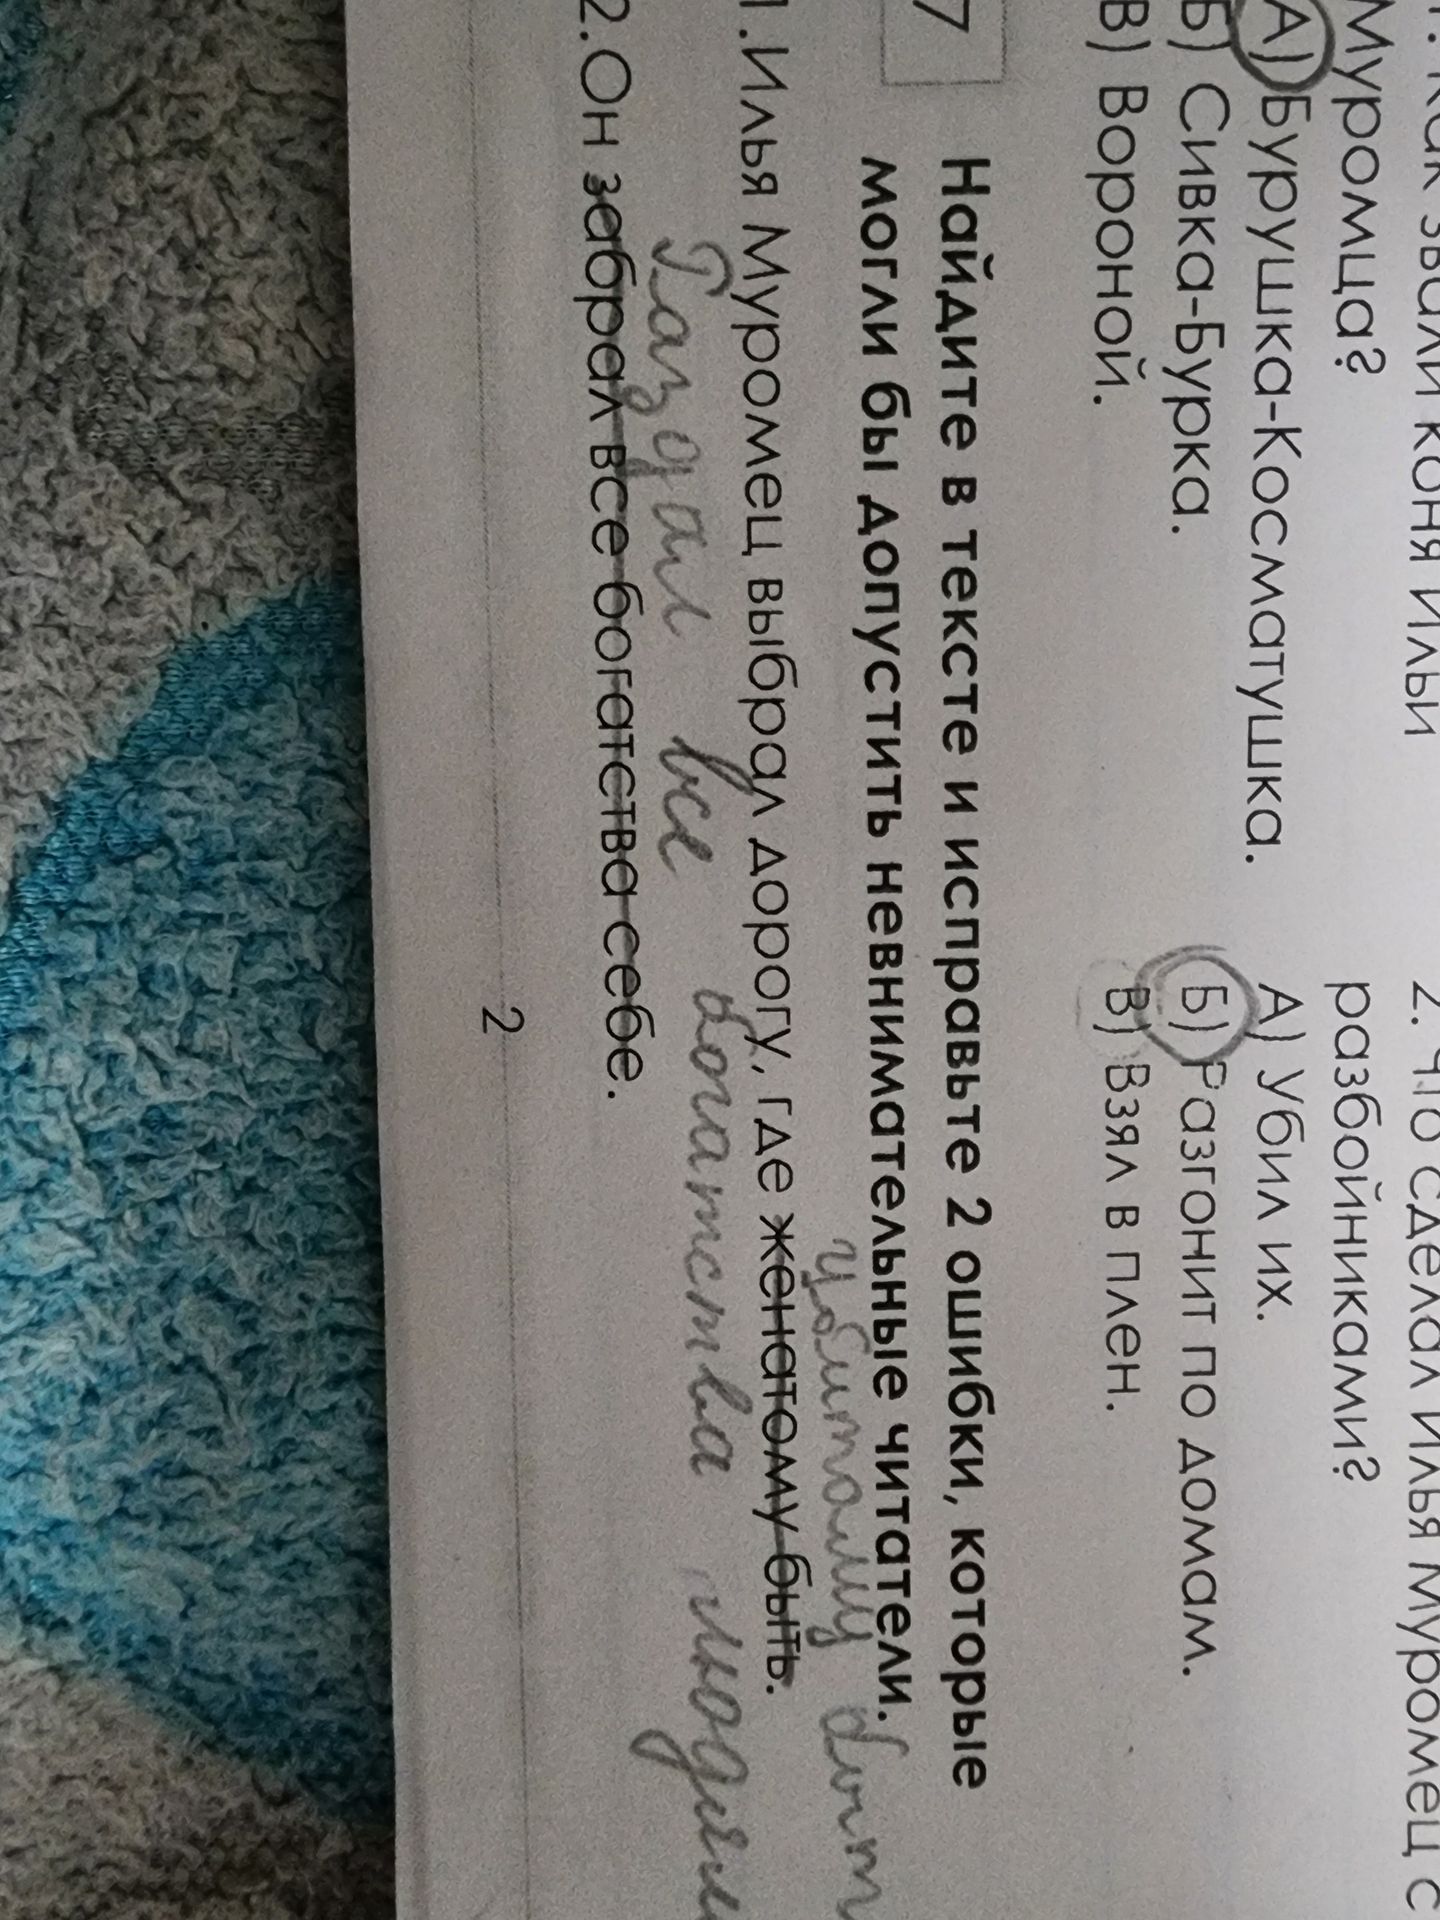 1. Как звали коня Ильи
Муромца?
А) Бурушка-Косматушка.
Б) Сивка-Бурка.
В) Вороной.
2. Что сделал Илья Муромец с
разбойниками?
А) Убил их.
Б) Разгонит по домам.
В) Взял в плен.
7 Найдите в тексте и исправьте 2 ошибки, которые
могли бы допустить невнимательные читатели.
убитому быт
1. Илья Муромец выбрал дорогу, где женатому быть.
Раздал все богатства людям
2. Он забрал все богатства себе.
2